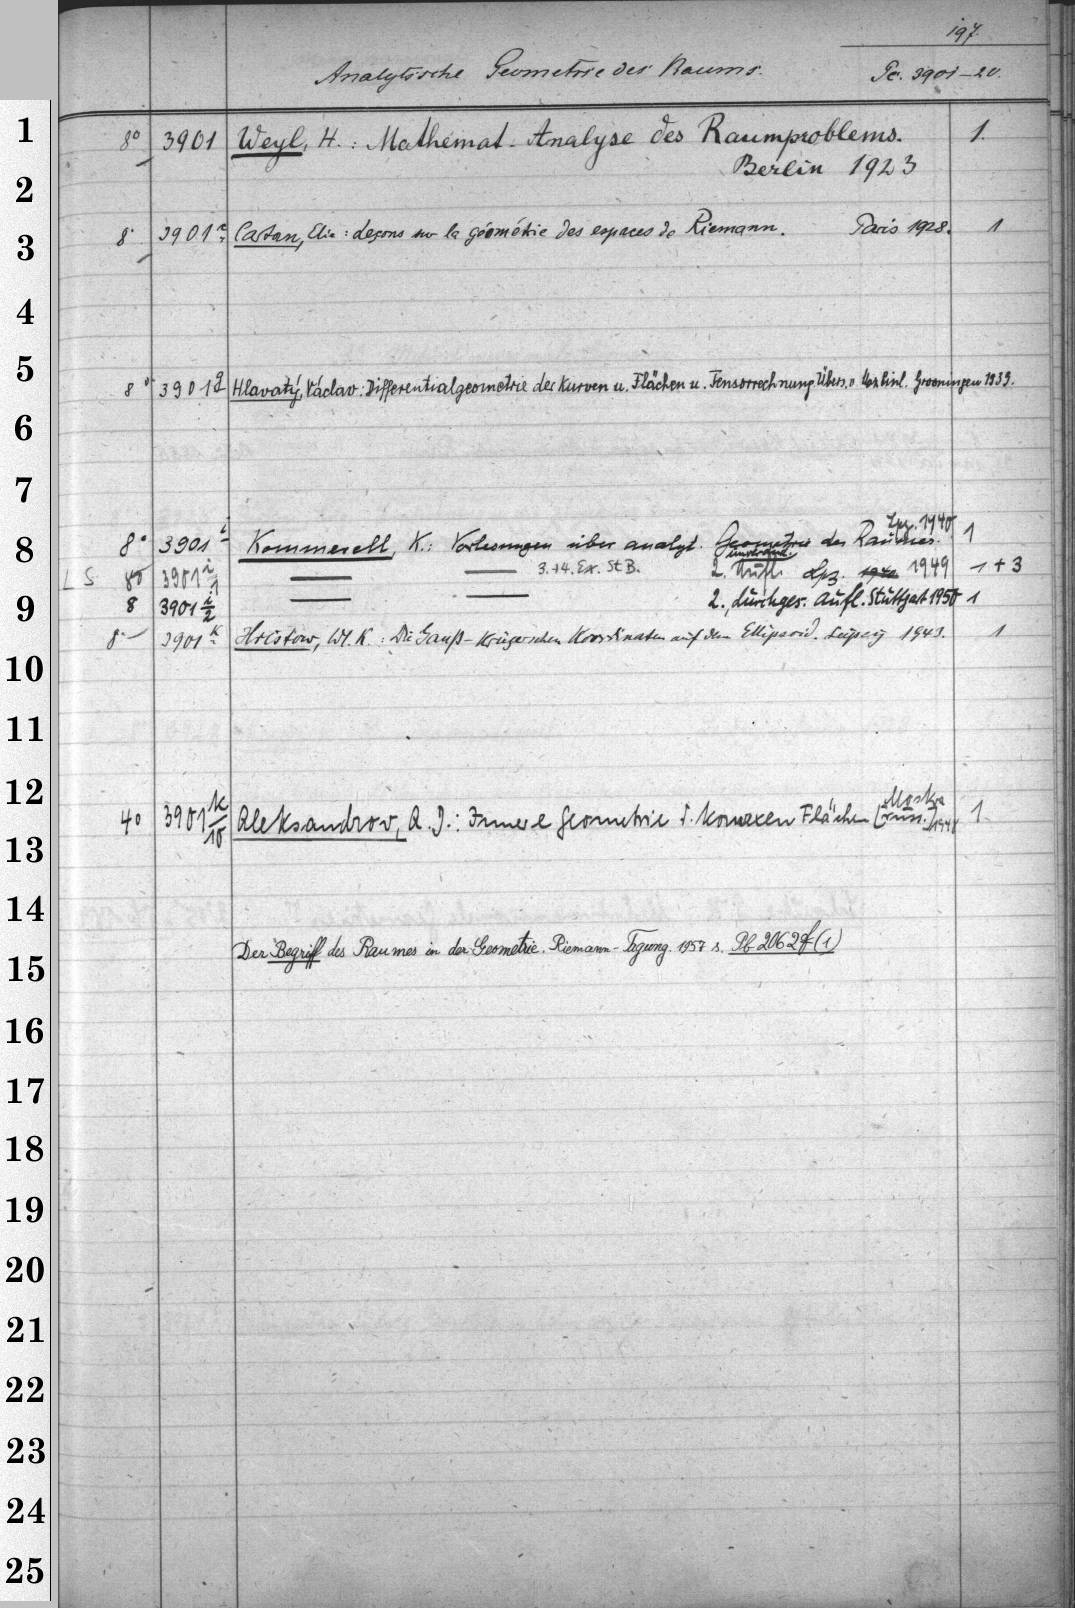 197.
Analytische Geometrie des Raums. Pc. 3901-20.
1 8° 3901 Weyl, H.: Mathemat. Analyse des Raumproblems. 1.
Berlin 1923
2
3 8° 3901 a Cartan, Elie: Leçons sur la géométrie des espaces de Riemann. Paris 1928. 1
4
5 8° 3901 g Hlavatý, Václav: Differentialgeometrie der Kurven u. Flächen u. Tensorrechnung. Übers. v. Groningen 1939.
6
7
Lpz. 1940
8 8° 3901 i Kommerell, K.: Vorlesungen über analyt. Geometrie des Raumes. 1
umgearb.
LS 8° 3901 i/1 — — 3.+4. Ex. St B. 2. Aufl. Lpz. 1949 1+3
9 8 3901 i/2 — — 2., durchges. Aufl. Stuttgart 1950 1
8° 3901 k Hristow, Wl. K.: Die Gauß-Krügerschen Koordinaten auf dem Ellipsoid. Leipzig 1943. 1
10
11
12 4° 3901 k/10 Aleksandrov, A. D.: Innere Geometrie d. konvexen Flächen [russ.] Moskva 1948 1.
13
14
15 Der Begriff des Raumes in der Geometrie. Riemann-Tagung. 1957 s. Pb 2062 f (1)
16
17
18
19
20
21
22
23
24
25